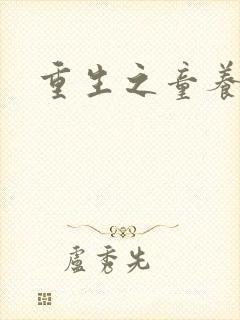 重生之童養
盧秀先